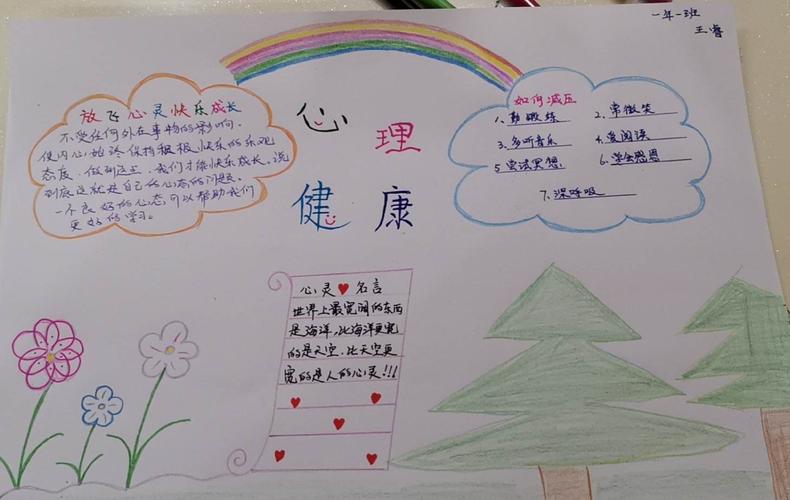 一年一班
王睿
放飞心灵快乐成长
不受任何外在事物的影响.
使内心始终保持积极、快乐的乐观
态度.做到这些,我们才能快乐成长.说
到底这就是自己的心态的问题。
一个良好的心态,可以帮助我们
更好的学习。
心理
健康
如何减压
1、勤锻炼 2、常微笑
3、多听音乐 4、爱阅读
5尝试冥想. 6、学会感恩
7、深呼吸
心灵♥名言
世界上最宽阔的东西
是海洋,比海洋更宽
的是天空,比天空更
宽的是人的心灵!!!